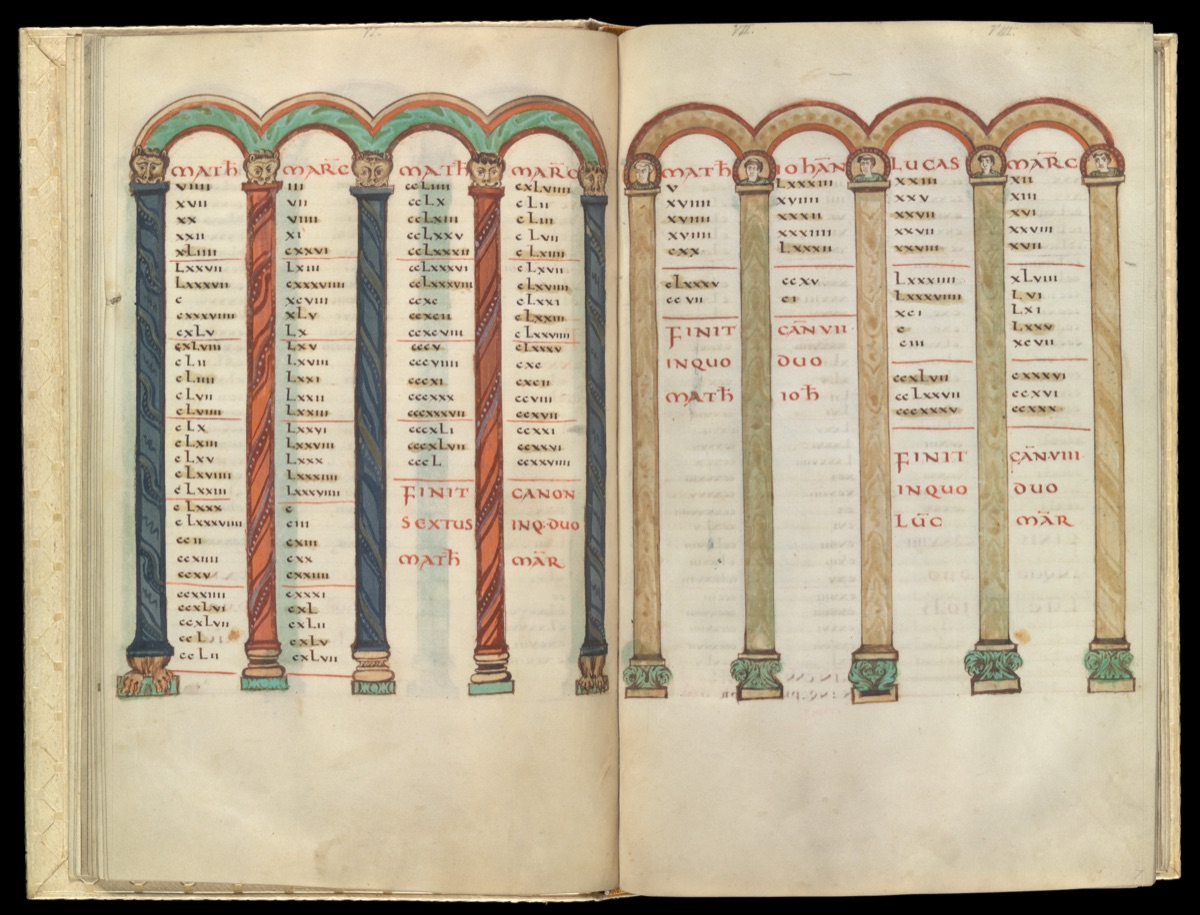 VI.
MATH
VIIII
XVII
XX
XXII
XLIIII
LXXVII
LXXXVII
C
CXXXVIIII
CXLV
CXLVIII
CLII
CLIIII
CLVII
CLVIIII
CLX
CLXIII
CLXV
CLXVIIII
CLXXIII
CLXXX
CLXXXVIIII
CCII
CCXIIII
CCXV
CCXXIIII
CCXLVI
CCXLVII
CCL
CCLII
MARC
III
VII
VIIII
XI
CXXVI
LXIII
CXXXVIIII
XCVIII
XLV
LX
LXV
LXVIII
LXXI
LXXII
LXXIII
LXXVI
LXXVIII
LXXX
LXXXIIII
LXXXVIIII
C
CIII
CXIII
CXX
CXXIIII
CXXXI
CXL
CXLII
CXLV
CXLVII
MATH
CCLIIII
CCLX
CCLXIII
CCLXXV
CCLXXXII
CCLXXXVI
CCLXXXVIII
CCXC
CCXCII
CCXCVIII
CCCV
CCCVIIII
CCCXI
CCCXXX
CCCXXXVII
CCCXLI
CCCXLVII
CCCL
MARC
CXLVIIII
CLII
CLIII
CLVII
CLXIIII
CLXVII
CLXVIIII
CLXXI
CLXXIII
CLXXVIIII
CLXXXV
CXC
CXCII
CCVIII
CCXVII
CCXXI
CCXXVI
CCXXVIIII
FINIT CANON
SEXTUS INQ·DUO
MATH MAR
VII.
MATH
V
XVIIII
XVIIII
XVIIII
CXX
CLXXXV
CCVII
IOHAN
LXXXIII
XVIIII
XXXII
XXXIIII
LXXXII
CCXV
CI
FINIT CAN VII
INQUO DUO
MATH IOH
VIII.
LUCAS
XXIII
XXV
XXVII
XXVII
XXVIII
LXXXIIII
LXXXVIIII
XCI
C
CIII
CCXLVII
CCLXXVII
CCCXXXV
MARC
XII
XIII
XVI
XXVIII
XVII
XLVIII
LVI
LXI
LXXV
XCVII
CXXXVI
CCXVI
CCXXX
FINIT CAN·VIII·
INQUO DUO
LUC MAR